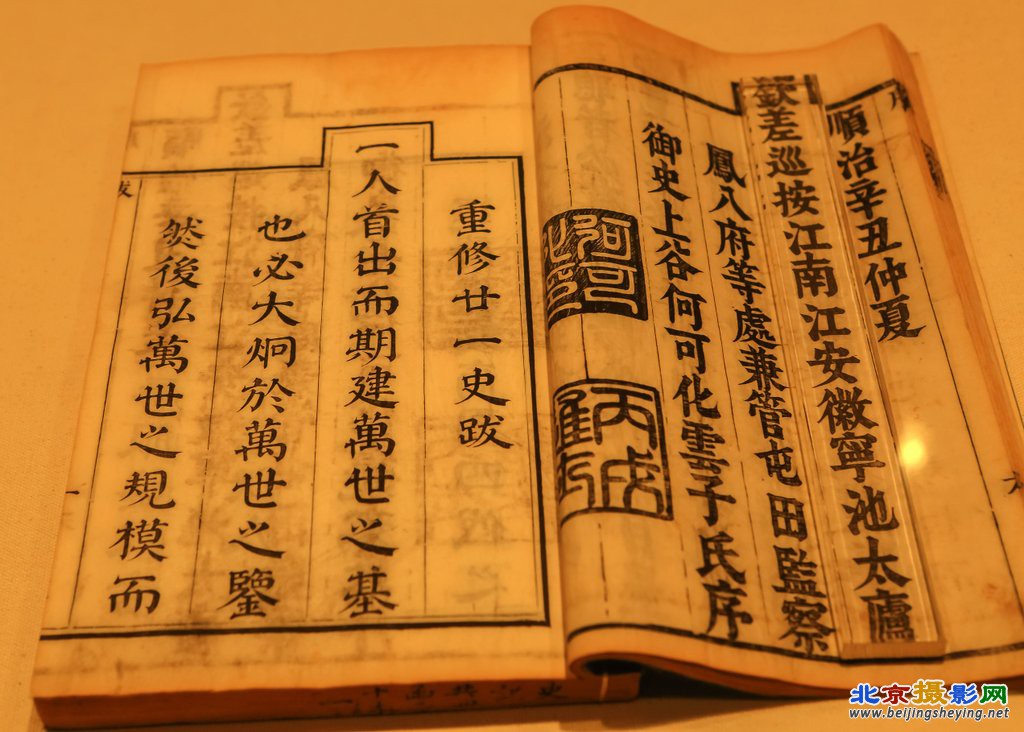 序
順治辛丑仲夏
欽差巡按江南江安徽寧池太廬
鳳八府等處兼管屯田監察
御史上谷何可化雲子氏序
丙戌
進士
重修廿一史跋
一人首出而期建萬世之基
也必大炯於萬世之鑒
然後弘萬世之規模而
跋
一
北京摄影网
www.beijingsheying.net